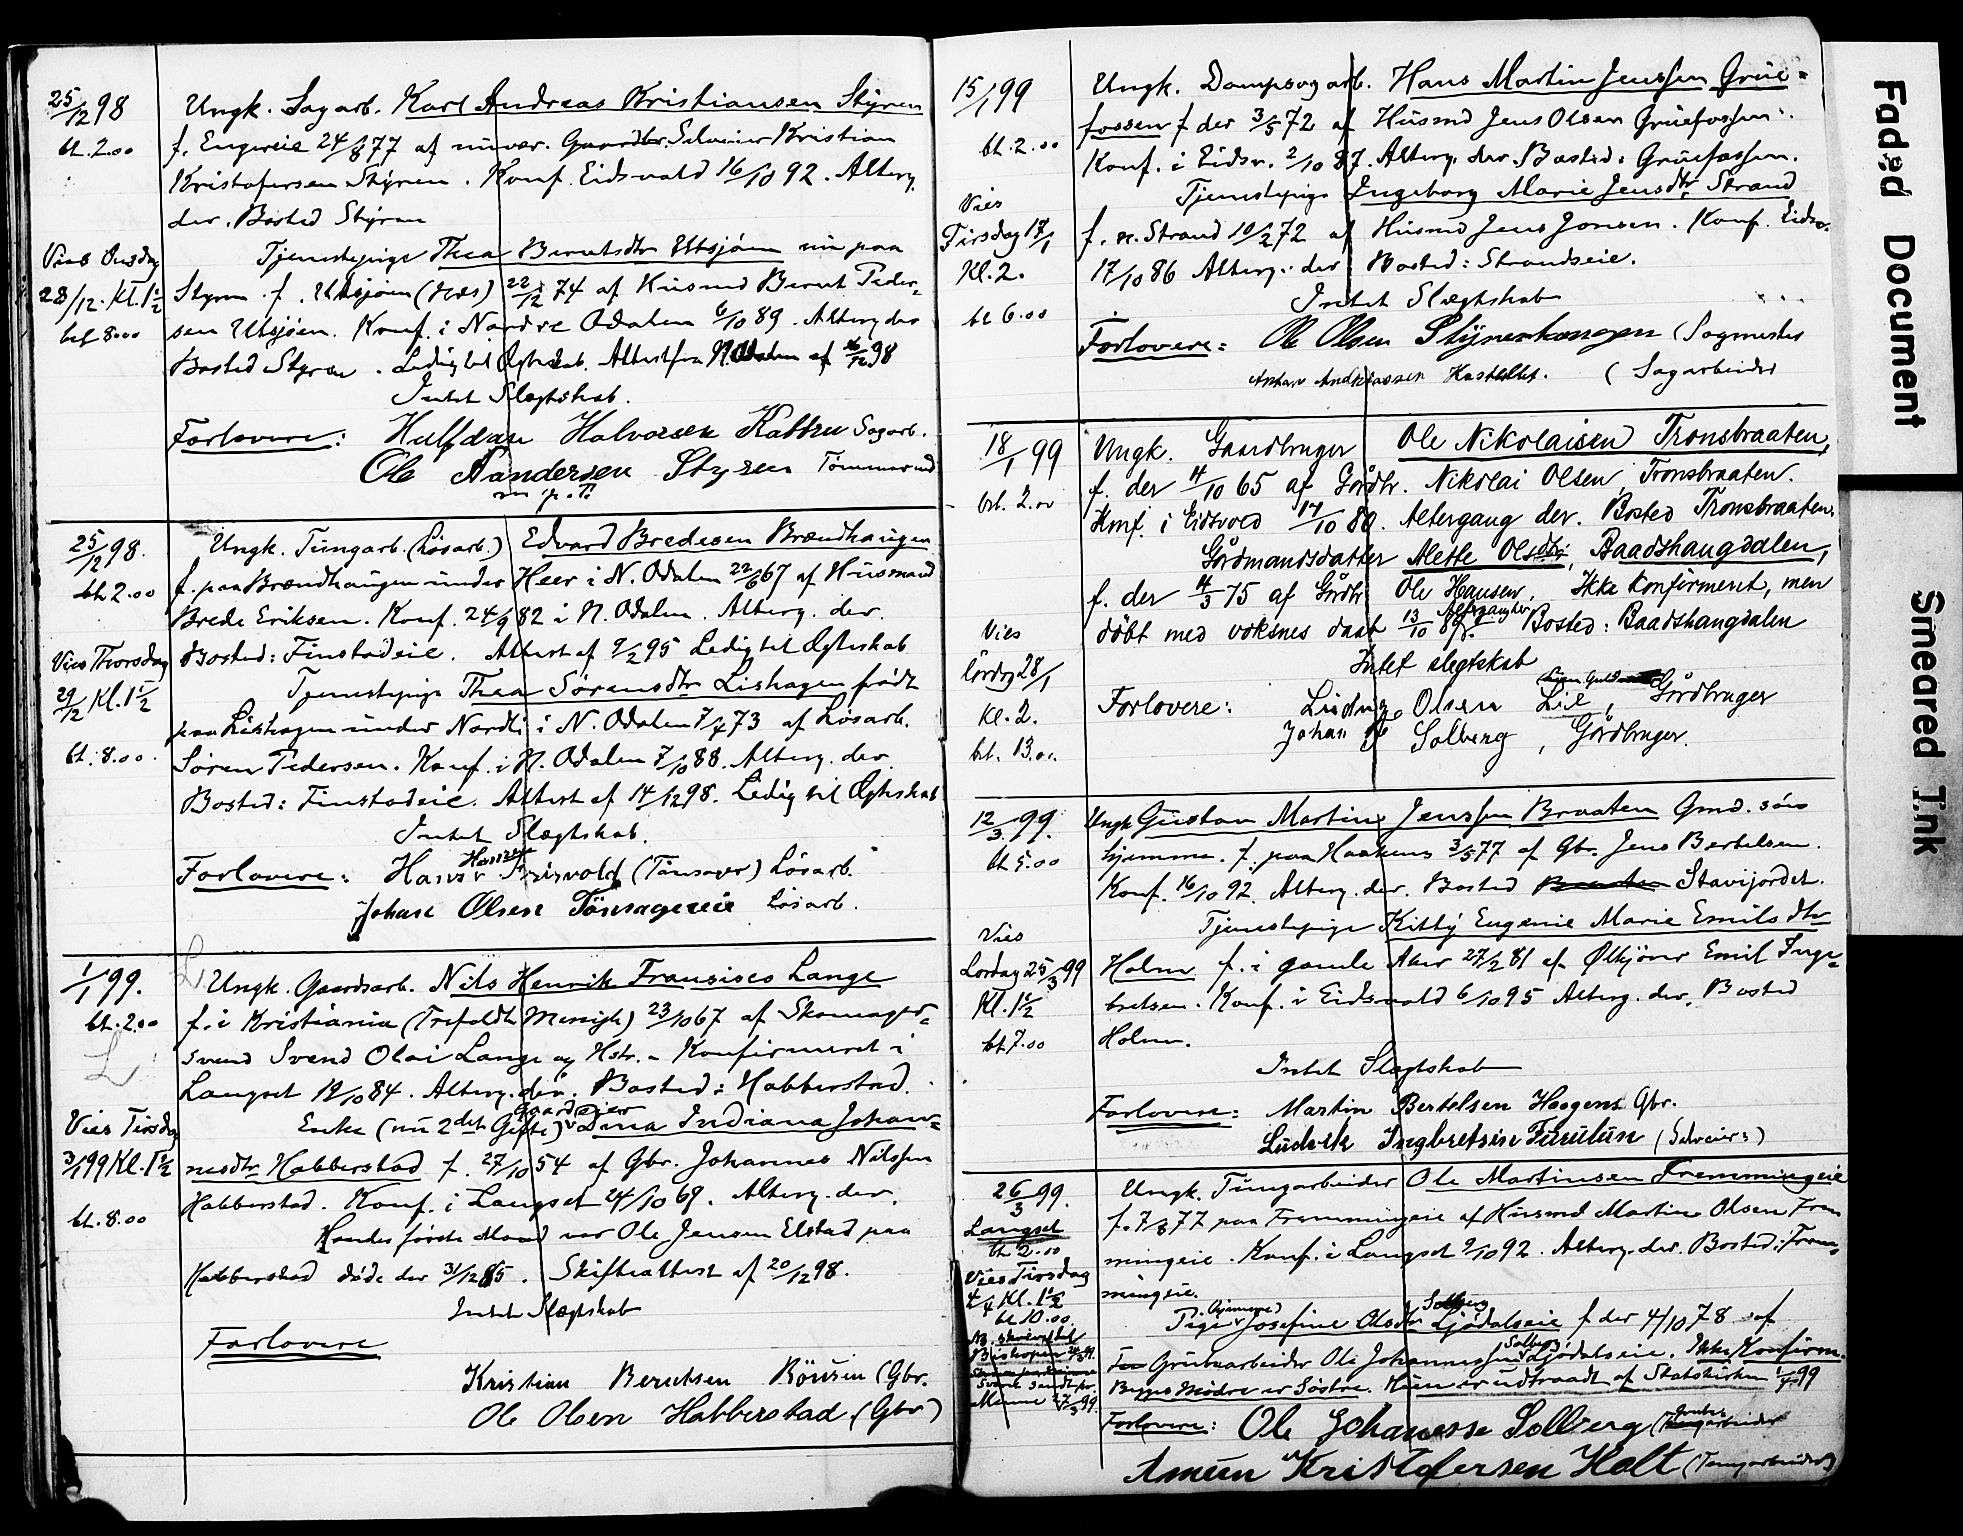 25/12 98
bt. 2.00
Ungk. Sagarb. Karl Andreas Kristiansen Styren
f. Engereie 24/8 77 af nuvær. Selveier Kristian
Kristofersen Styren. Konf. Eidsvold 16/10 92. Alterg.
der. Bosted Styren
Vies Onsdag
28/12. Kl. 1 1/2
bet 8.00
Tjenestepige Thea Berntsdtr Utsjøen nu paa
Styren f. Utsjøen (Næs) 22/12 74 af Husmd Bernt Peder-
sen Utsjøen. Konf. i Nordre Odalen 6/10 89. Alterg. der
Bosted Styren. Ledig til Ægteskab. Attest fra N. Odalen af 16/12 98
Intet Slægtskab.
Forlovere: Halfdan Halvorsen Sagarb.
Ole Aandersen Styren Tømmermd
m. p. P.
25/12 98.
bt. 2.00
Ungk. Tungarb. (Løsarb.) Edvard Bredesen Brændhaugen
f. paa Brændhaugen under Heer i N. Odalen 22/6 67 af Husmand
Brede Eriksen. Konf. 24/9 82 i N. Odalen. Alterg. der.
Bosted: Finstadeie. Attest af 9/2 95 Ledig til Ægteskab
Vies Thorsdag
29/12 Kl. 1 1/2
bt. 8.00
Tjenestepige Thea Sørensdtr Lishagen født
paa Lishagen under Nordli i N. Odalen 7/7 73 af Løsarb.
Søren Pedersen. Konf. i N. Odalen 7/10 88. Alterg. der.
Bosted: Finstadeie. Attest af 14/12 98. Ledig til Ægteskab
Intet Slægtskab.
Forlovere: Hans Hansen (Tønsager) Løsarb.
Johan Olsen Tønsagereie Løsarb.
1/1 99.
bt. 2.00
L
Ungk. Gaardsarb. Nils Henrik Fransisco Lange
f. i Kristiania (Trefoldh. Menigh) 23/10 67 af Skomager-
svend Svend Olai Lange og Hstr. - Konfirmeret i
Langset 19/10 84. Alterg. der. Bosted: Habberstad.
Vies Tirsdag
3/1 99 Kl. 1 1/2
bt. 8.00
Enke (nu 2det Gifte) Gaardeier Dina Indiana Johan-
nesdtr Habberstad f. 27/10 54 af Gbr. Johannes Nilssen
Habberstad. Konf. i Langset 24/10 69. Alterg. der.
Hendes første Mand var Ole Jensen Elstad paa
Habberstad døde der 31/12 85. Skifteattest af 20/12 98.
Intet Slægtskab
Forlovere
Kristian Berntsen Rönsen (Gbr.
Ole Olsen Habberstad (Gbr)
15/1 99
bt. 2.00
Ungk. Dampsagarb. Hans Martin Jenssen Grüe-
fossen f der 3/5 72 af Husmd Jens Olsen Grüefossen.
Konf. i Eidsv. 2/10 87. Alterg. der. Bosted: Grüefossen.
Vies
Tirsdag 17/1
Kl. 2.
bt 6.00
Tjenestepige Ingeborg Marie Jensdtr Strand
f. n. Strand 10/2 72 af Husmd Jens Jonsen. Konf. Eidsv.
17/10 86 Alterg. der Bosted: Strandseie.
Intet Slægtskab
Forlovere: Ole Olsen (Sagmester
Anton Andreassen Kastellet. (Sagarbeider
18/1 99
bt. 2.00
Ungk. Gaardbruger Ole Nikolaisen Tronsbraaten,
f. der 4/10 65 af Gårdbr. Nikolai Olsen Tronsbraaten.
Konf. i Eidsvold 17/10 80. Altergang der. Bosted Tronsbraaten.
Gårdmandsdatter Mette Olsdtr. Baadshangdalen,
f. der 4/3 75 af Gårdbr Ole Hansen. Ikke konfirmeret, men
döbt med voksnes daab 13/10 Altergang der. Bosted: Baadshangdalen
Vies
lördag 28/1
Kl. 2.
bt. 13.00.
Intet slegtskab
Forlovere: Ludvig Olsen Lie, Gårdbruger
Johan Solberg, Gårdbruger.
12/3 99.
bt 5.00
Ungk Gustav Martin Jenssen Braaten Gmd. søn
hjemme. f. paa Haakens 3/5 77 af Gbr. Jens Bertelsen.
Konf. 16/10 92. Alterg. der. Bosted Stavijordet.
Vies
Lørdag 25/3 99
Kl. 1 1/2
bt 7.00
Tjenestepige Kitty Eugenie Marie Emilsdtr
Holm f. i gamle Aker 27/2 81 af Ølkjører Emil Inge-
bretsen. Konf. i Eidsvold 6/10 95 Alterg. der. Bosted
Holm.
Intet Slægtskab
Forlovere: Martin Bertelsen Haagens Gbr.
Ludvik Ingbretsen (Selveier)
26/3 99.
Langset
bt 2.00
Vies Tirsdag
4/4 Kl. 1 1/2
bt 10.00
Ungk. Tungarbeider Ole Martinsen Fremmingeie
f. 7/8 77 paa Fremmingeie af Husmd Martin Olsen Frem
mingeie. Konf. i Langset 9/10 92. Alterg. der. Bosted: Frem-
mingeie.
Pige (hjemme) Josefine Olsdtr Solberg Ljødalseie f der 4/10 78 af
Grubearbeider Ole Johannessen Solberg Ljødalseie. Ikke Konfirm.
Mødre er Søstre. Hun er udtraadt af Statskirken 99
Forlovere: Ole Johanesse Solberg (Grubearbeider
Amun Kristofersen Holt (Tungarbeider)
Faded Document
Smeared Ink